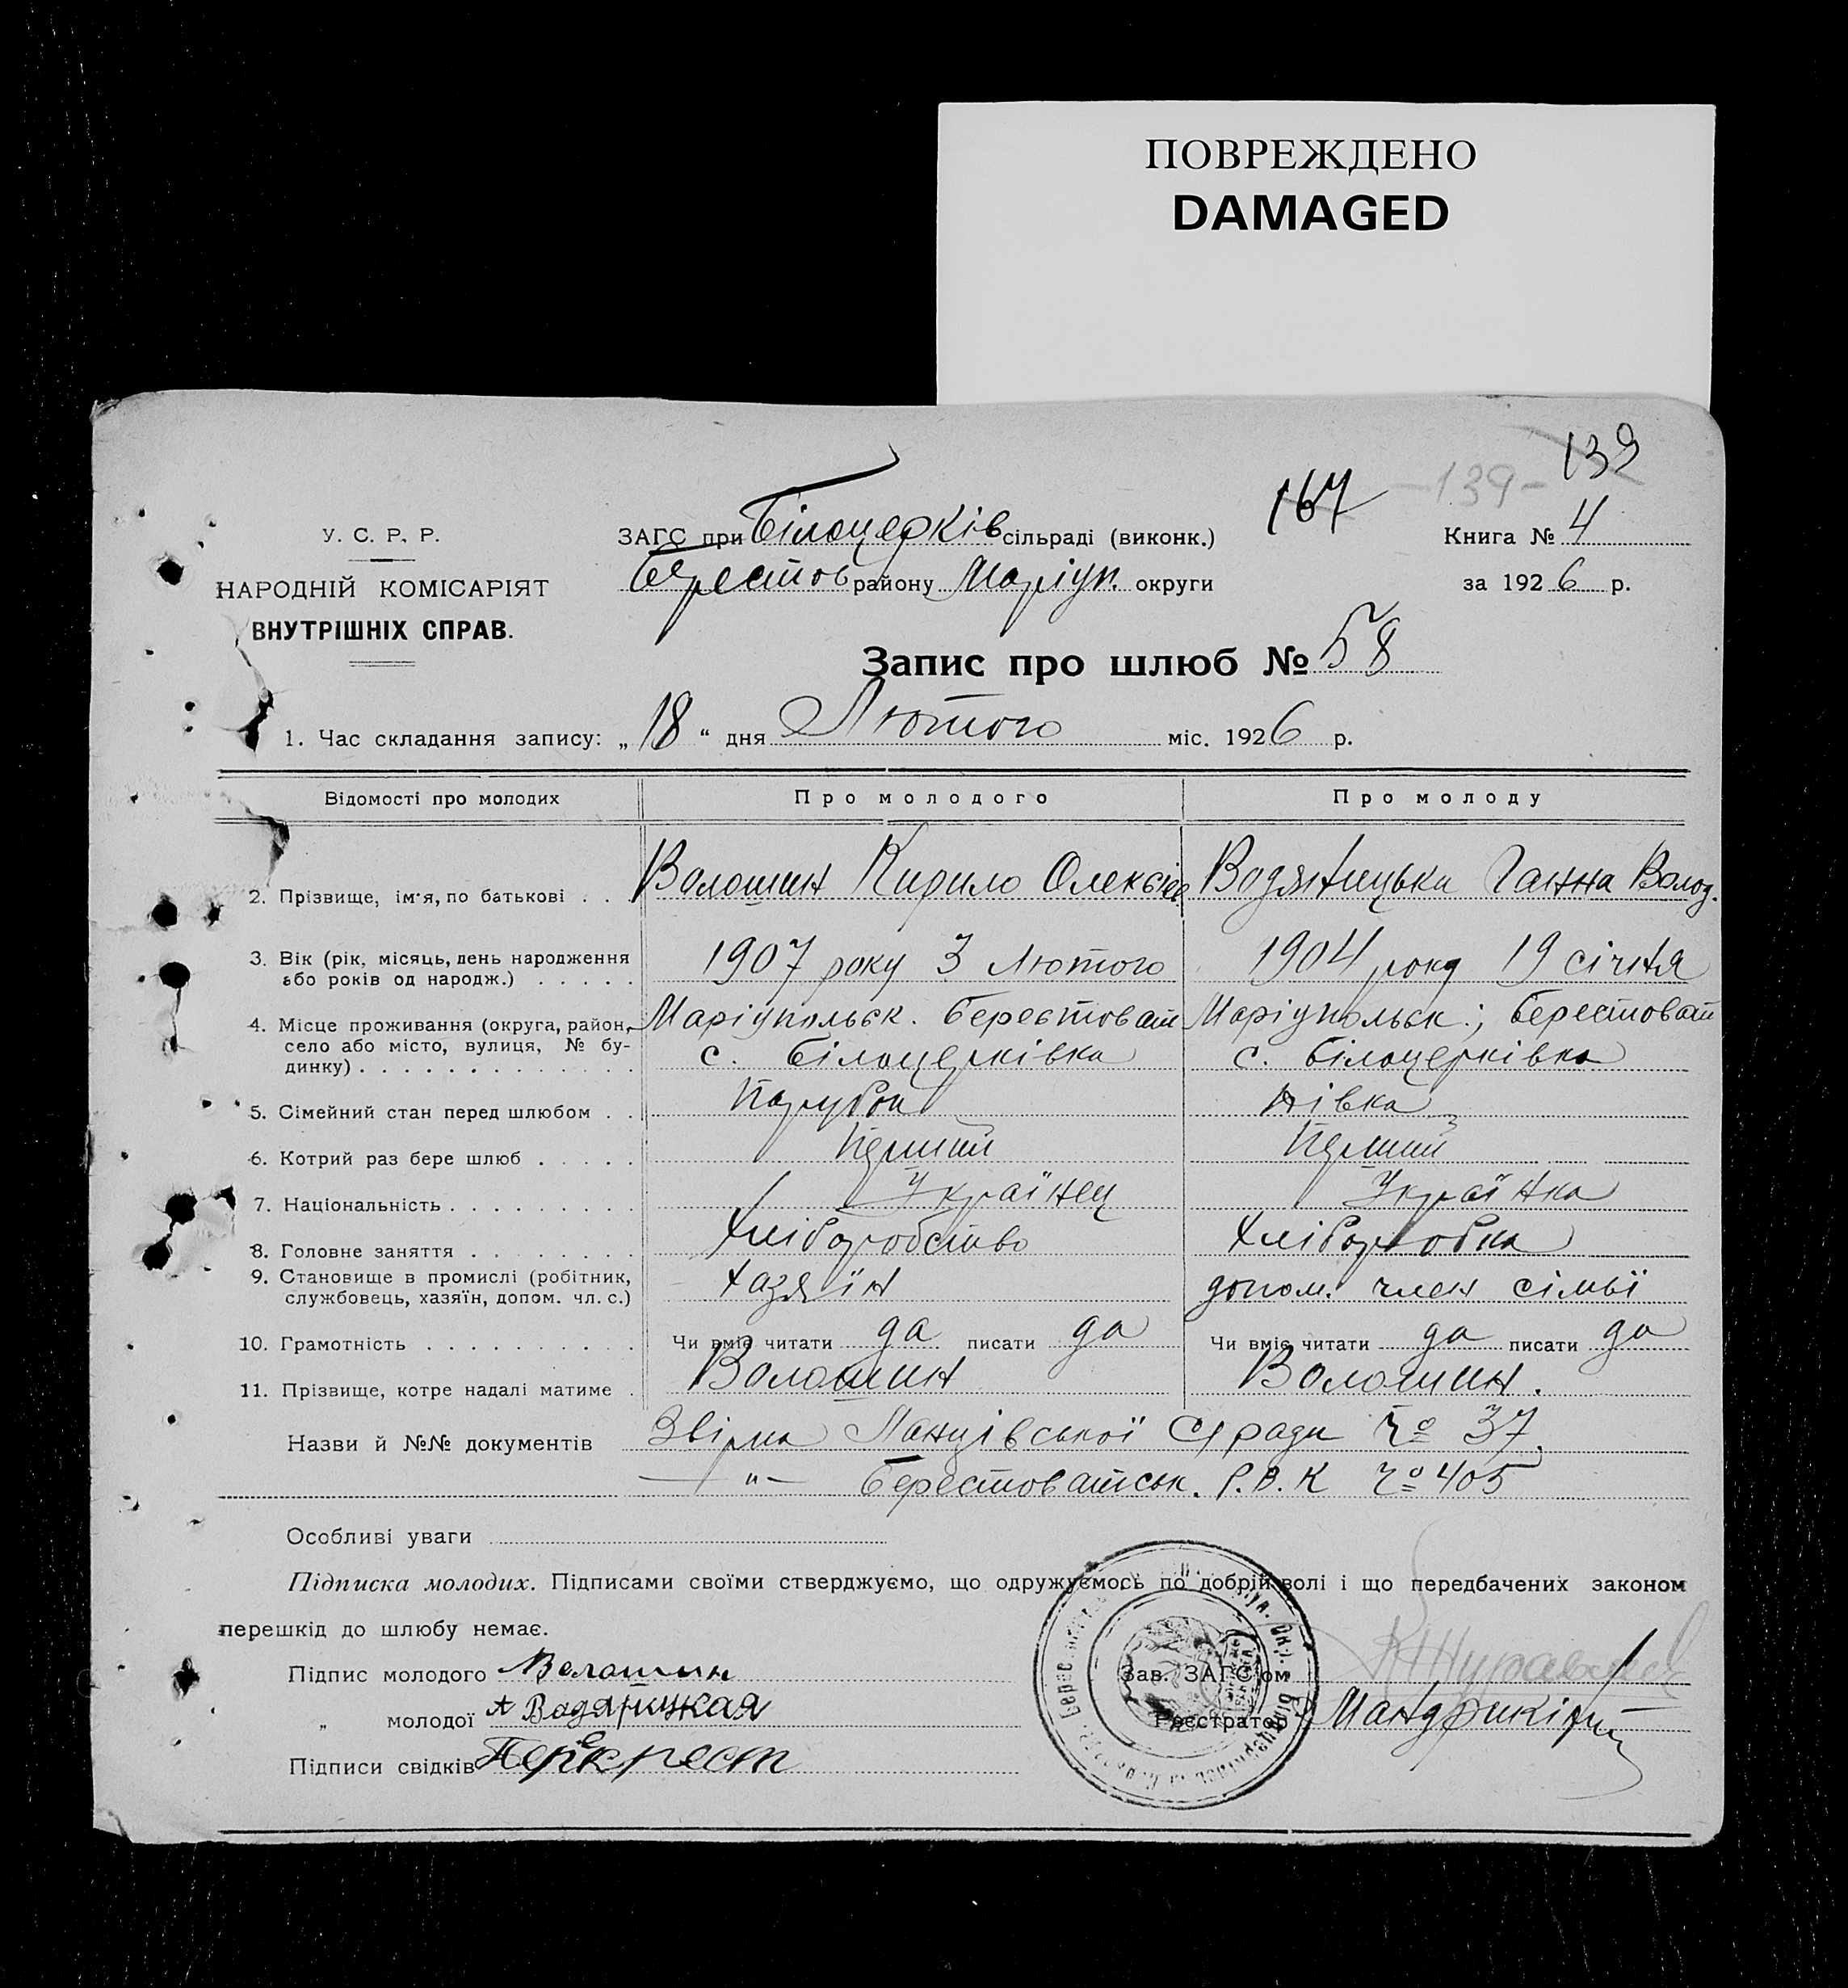 ПОВРЕЖДЕНО
DAMAGED
139
167 -139-
У. С. Р. Р.
НАРОДНІЙ КОМІСАРІЯТ
ВНУТРІШНІХ СПРАВ.
ЗАГС при Білоцерків сільраді (виконк.)
Берестов району Маріуп. округи
Книга № 4
за 1926 р.
Запис про шлюб № 58
1. Час складання запису: „18“ дня Лютого міс. 1926 р.
Відомості про молодих Про молодого Про молоду
2. Прізвище, ім'я, по батькові . . . Волошин Кирило Олексієв Водяницька Ганна Волод.
3. Вік (рік, місяць, день народження 1907 року 3 Лютого 1904 року 19 січня
або років од народж.) . . . . .
4. Місце проживання (округа, район, Маріупольск. Берестоват Маріупольск.; Берестоват
село або місто, вулиця, № бу- с. Білоцерківка с. Білоцерківка
динку) . . . . . . . . . . . . .
5. Сімейний стан перед шлюбом . . Парубок дівка
6. Котрий раз бере шлюб . . . . . Перший Перший
7. Національність . . . . . . . . . Українец Українка
8. Головне заняття . . . . . . . . Хліборобство Хліборобка
9. Становище в промислі (робітник, хазяїн допом. член сімьї
службовець, хазяїн, допом. чл. с.)
10. Грамотність . . . . . . . . . . Чи вміє читати да писати да Чи вміє читати да писати да
11. Прізвище, котре надалі матиме . Волошин Волошин.
Назви й №№ документів Звірка Ланцівської С/ради № 37.
— " — Берестоватськ. Р.В.К № 405
Особливі уваги
Підписка молодих. Підписами своїми стверджуємо, що одружуємось по добрій волі і що передбачених законом
перешкід до шлюбу немає.
Підпис молодого Волошин
„ молодої А Водяницкая
Підписи свідків Перекрест
Зав. ЗАГС'ом
Реєстратор